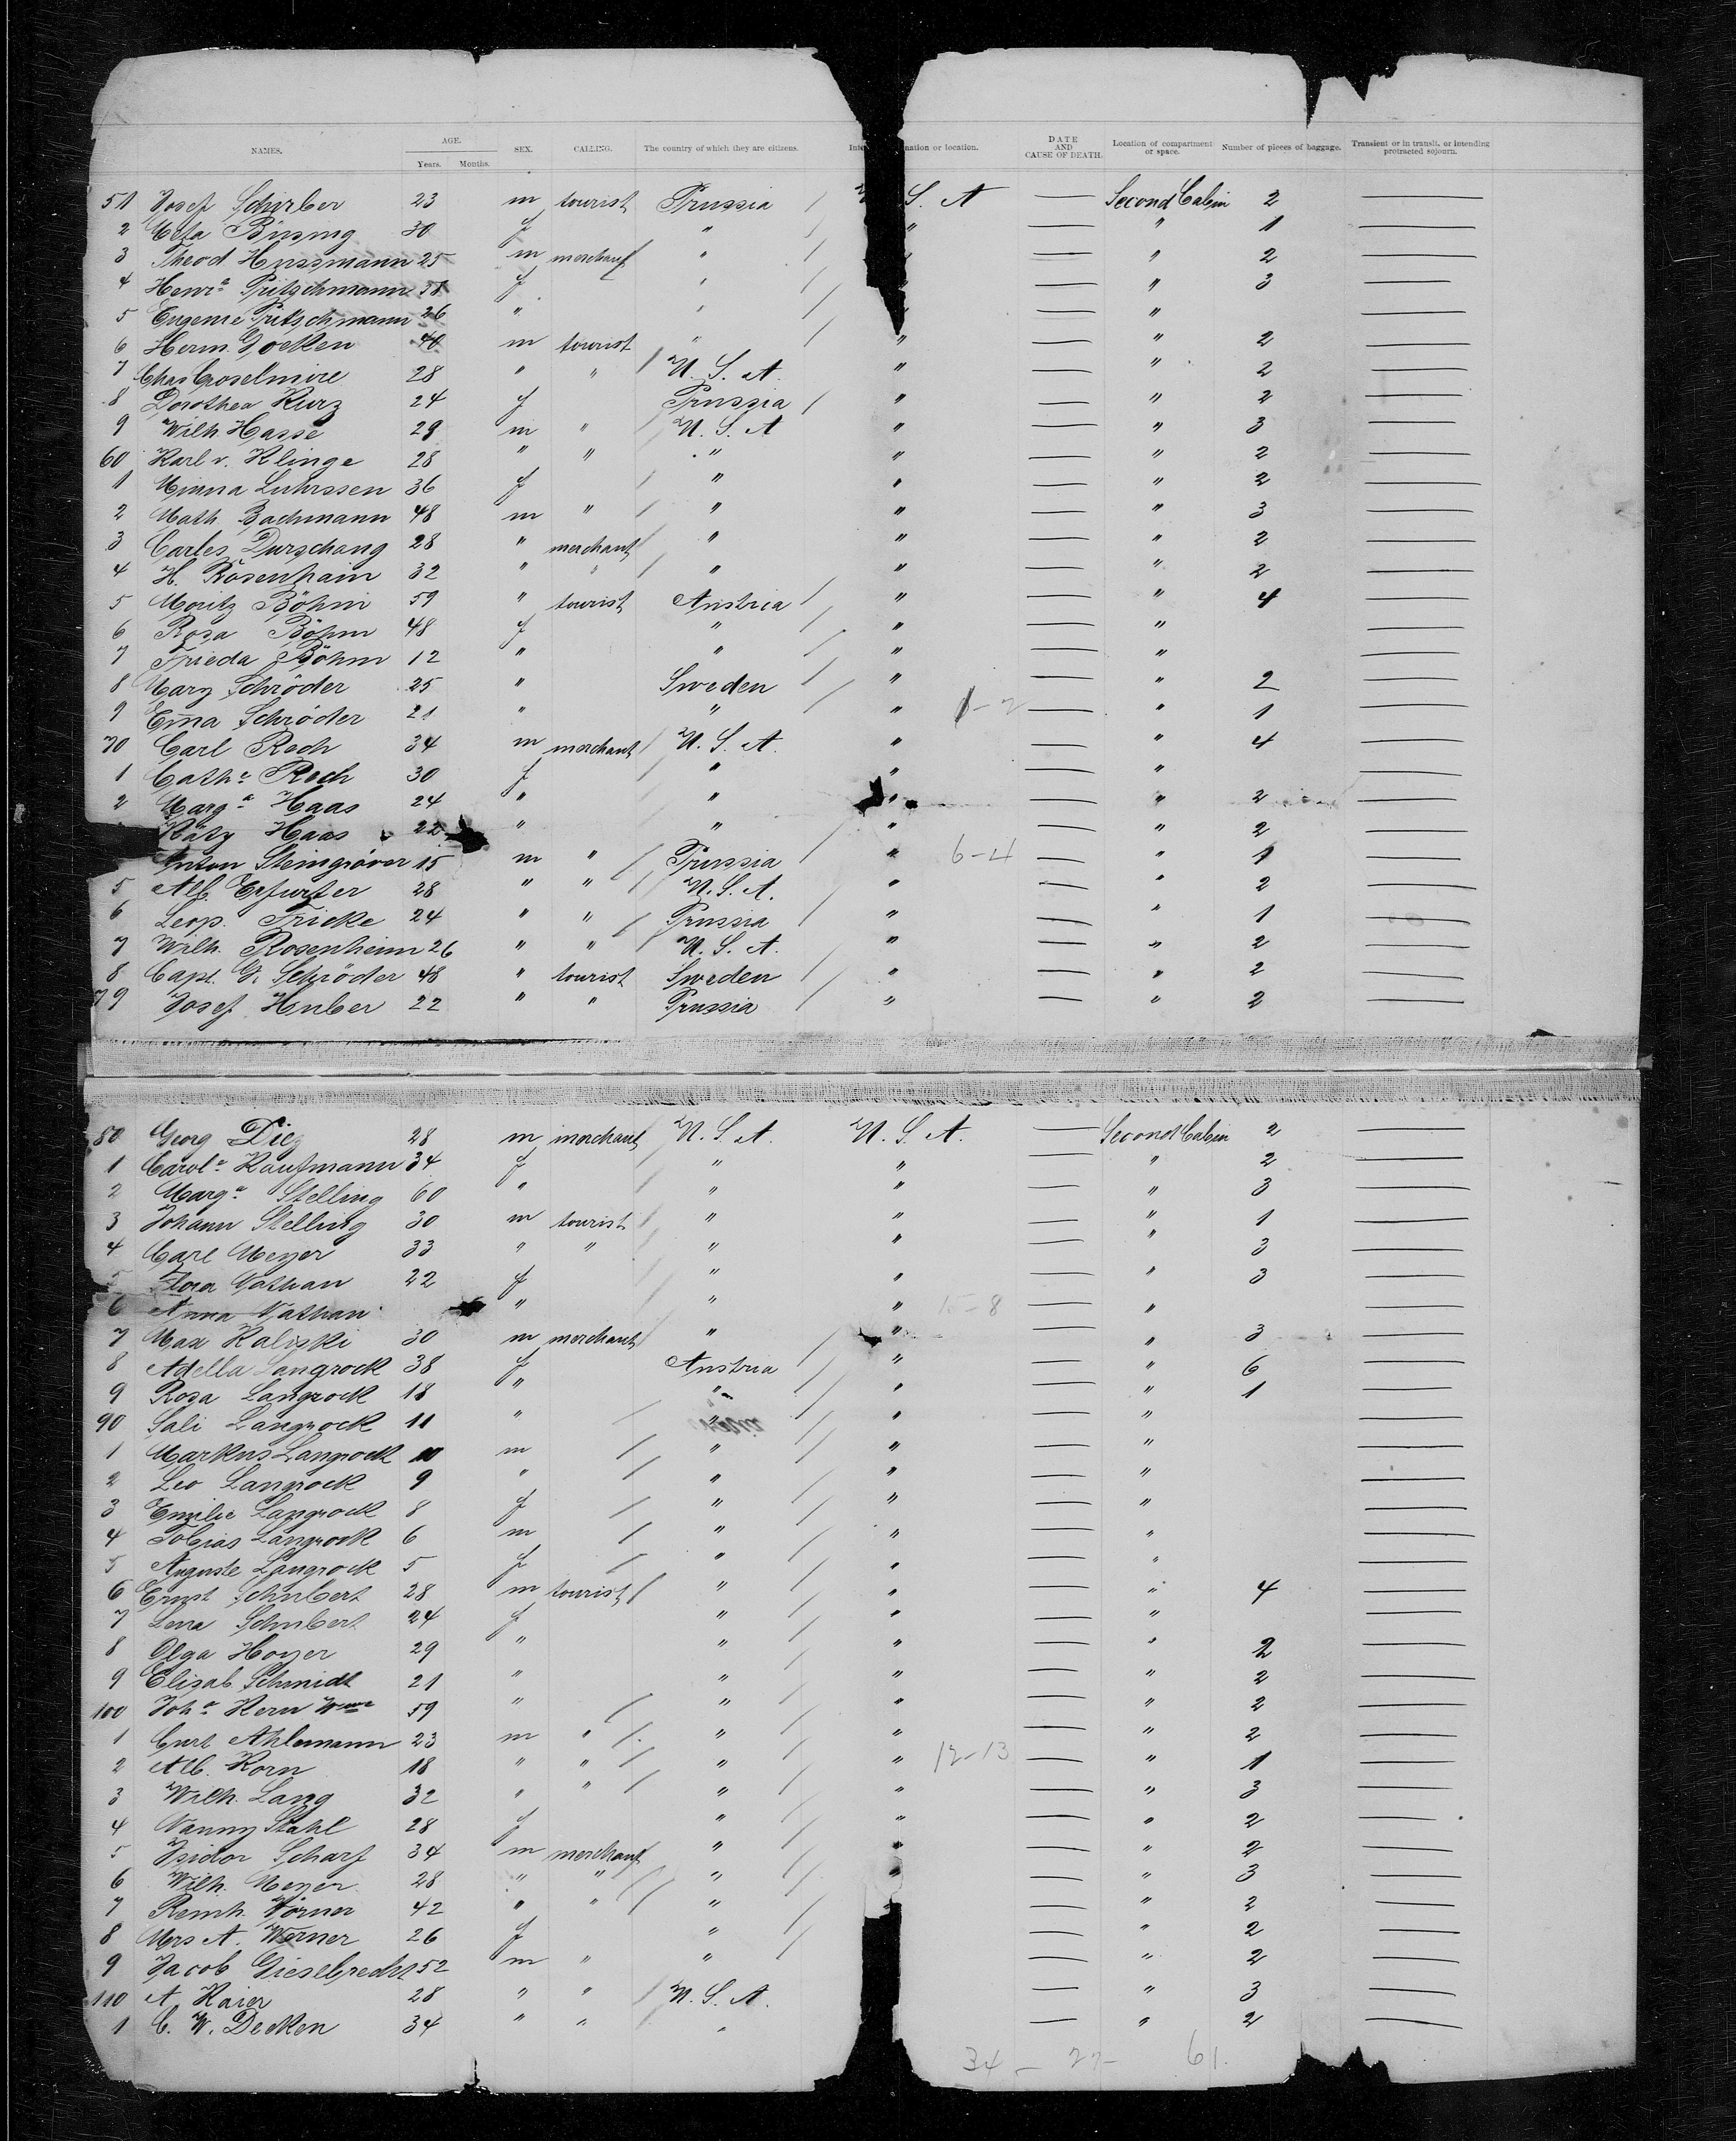 NAMES. AGE. Years. Months. SEX. CALLING. The country of which they are citizens. Inte nation or location. DATE AND CAUSE OF DEATH. Location of compartment or space. Number of pieces of baggage. Transient or in transit, or intending protracted sojourn.
51 Josef Schirber 23 m tourist Prussia / S. A — Second Cabin 2 —
2 Meta Büsing 30 f " / " — " 1 —
3 Theod Hussmann 25 m merchant " / — " 2 —
4 Henra Pritschmann f " / — " 3 —
5 Eugenie Pritschmann 26 " " / — " —
6 Herm. Goeken 40 m tourist " / " — " 2 —
7 Chas Groselmire 28 " " / U. S. A. " — " 2 —
8 Dorothea Kurz 24 f Prussia / " — " 2 —
9 Wilh. Hasse 29 m " / U. S. A " — " 3 —
60 Karl v. Klinge 28 " " / " " — " 2 —
1 Minna Luhrssen 36 f / " " — " 2 —
2 Math Bachmann 48 m " / " " — " 3 —
3 Carles Durschang 28 " merchant / " " — " 2 —
4 H. Rosenhain 32 " " / " " — " 2 —
5 Moritz Böhm 59 " tourist Austria / " — " 4 —
6 Rosa Böhm 48 f " / " — " —
7 Frieda Böhm 12 " " / " — " —
8 Mary Schröder 25 " Sweden / " — " 2 —
9 Ema Schröder 21 " " / " 1-2 — " 1 —
70 Carl Roch 34 m merchant / U. S. A. " — " 4 —
1 Catha Roch 30 f / " " — " —
2 Marga Haas 24 " / " " — " 2 —
Käty Haas 22 " / " " — " 2 —
Anton Steingröver 15 m " / Prussia / " 6-4 — " 1 —
5 Alb. Erfurter 28 " " / U. S. A. " — " 2 —
6 Leop. Fricke 24 " " / Prussia / " — " 1 —
7 Wilh. Rosenheim 26 " " / U. S. A. " — " 2 —
8 Capt. G. Schröder 48 " tourist Sweden / " — " 2 —
79 Josef Huber 22 " " Prussia / " — " 2 —
80 Georg Diez 28 m merchant / U. S. A. U. S. A. — Second Cabin 2 —
1 Carola Kaufmann 34 f / " " — " 2 —
2 Marga Stelling 60 " / " " — " 3 —
3 Johann Stelling 30 m tourist / " " — " 1 —
4 Carl Meyer 33 " " / " " — " 3 —
5 Flora Nathan 22 f / " " — " 3 —
6 Anna Nathan " / " " 15-8 — " —
7 Max Kaliski 30 m merchant / " " — " 3 —
8 Adella Langrock 38 f Austria / " — " 6 —
9 Rosa Langrock 18 " " / " — " 1 —
90 Sali Langrock 11 " / " / " — " —
1 Markus Langrock 10 m / " / " — " —
2 Leo Langrock 9 " / " / " — " —
3 Emilie Langrock 8 f / " / " — " —
4 Tobias Langrock 6 m / " / " — " —
5 Auguste Langrock 5 f / " / " — " —
6 Ernst Schubert 28 m tourist / " / " — " 4 —
7 Lena Schubert 24 f " / " — " —
8 Olga Hoyer 29 " " / " — " 2 —
9 Elisab Schmidt 21 " " / " — " 2 —
100 Joha Kern Wwe 59 " / " / " — " 2 —
1 Curt Ahlemann 23 m " / " / " — " 2 —
2 Alb. Korn 18 " " / " / " 12-13 — " 1 —
3 Wilh. Lang 32 " " / " / " — " 3 —
4 Nanny Stahl 28 f " / " — " 2 —
5 Isidor Scharf 34 m merchant " / " — " 2 —
6 Wilh. Meyer 28 " " / " / " — " 3 —
7 Reinh. Wörner 42 " " / " / — " 2 —
8 Mrs A. Wörner 26 f " / — " 2 —
9 Jacob Gieselbrecht 52 m " " / — " 2 —
110 A. Kaier 28 " " / U. S. A. — " 3 —
1 C. W. Decken 34 " " / " — " 2 —
34 - 27 - 61.